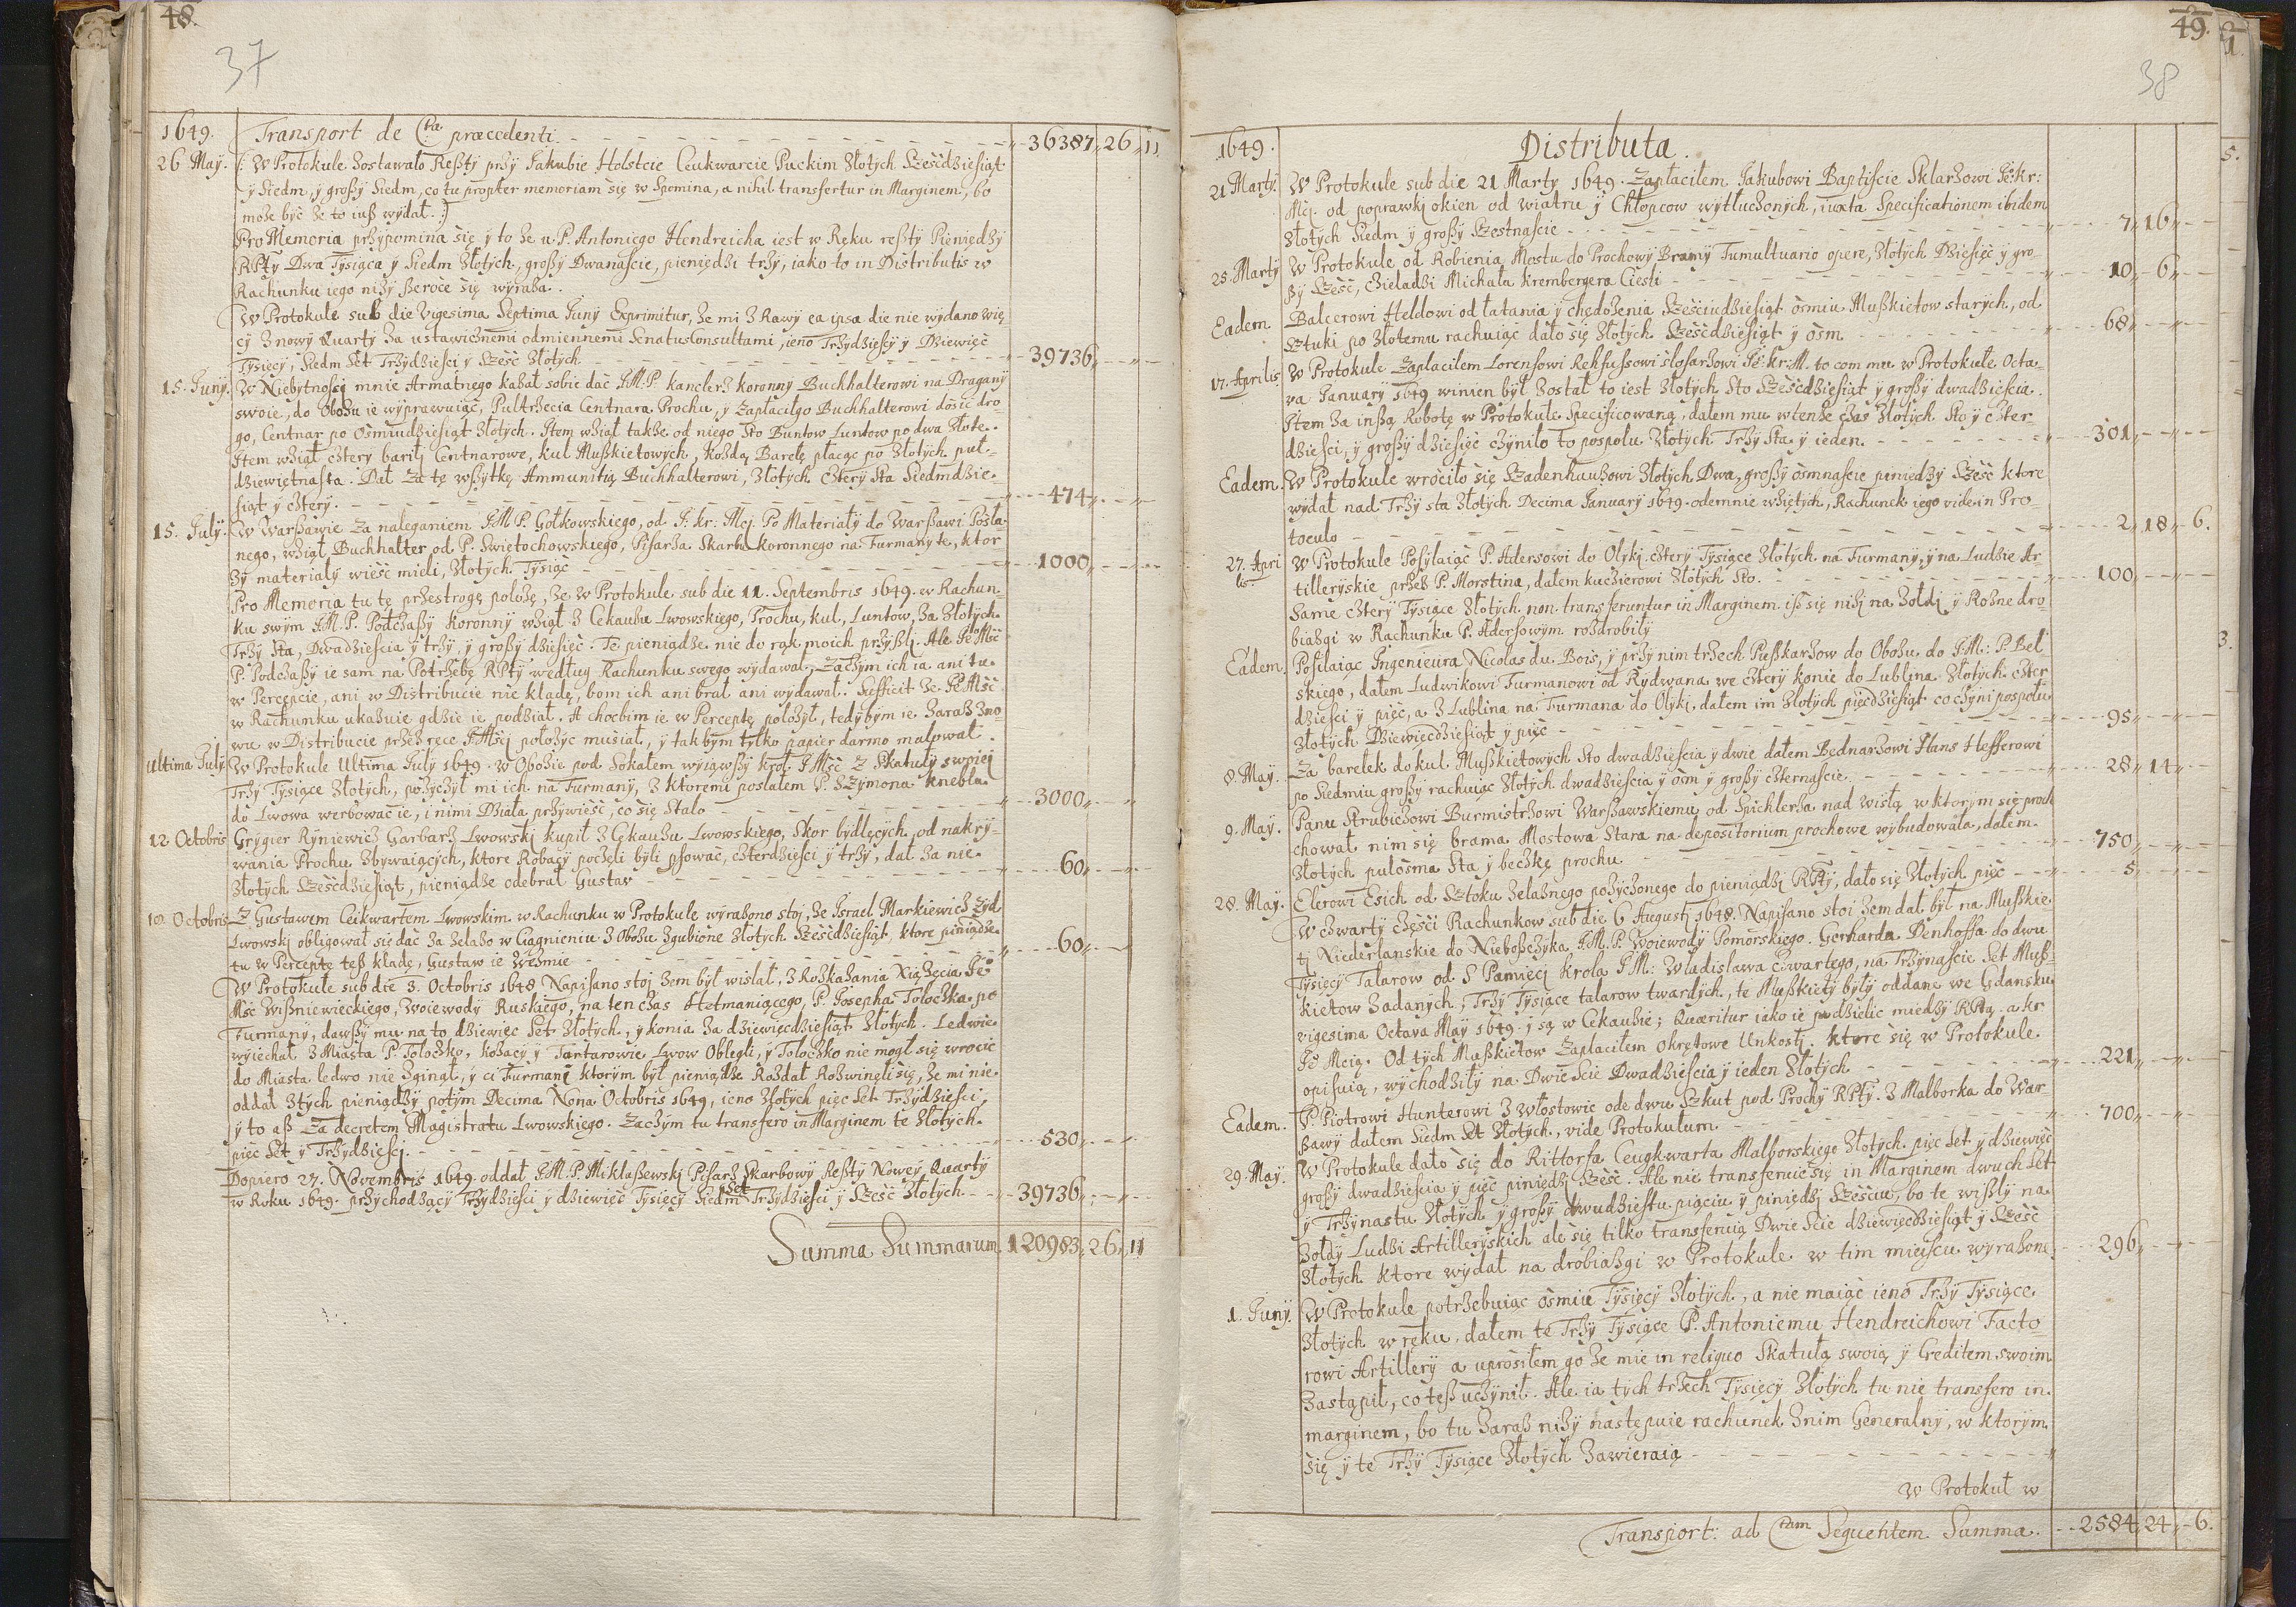 48.
37
1649. Transport de Cta præcedenti 36387 26 11
26 Maÿ. (: W Protokule Zostawało Reßtÿ przÿ Jakubie Holstcie Ceukwarcie Puckim Złotÿch Sześćdzieſiąt
ÿ Siedm, ÿ großÿ Siedm, co tu propter memoriam się w Spomina, a nihil transfertur in Marginem, bo
może bÿć że to iuß wÿdał. :)
Pro Memoria przÿpomina się ÿ to że u P. Antoniego Hendreicha iest w Ręku reßtÿ Pieniędzÿ
RPtÿ Dwa Tÿsiąca ÿ Siedm Złotÿch, großÿ Dwanaście, pieniędzi trzÿ, iako to in Distributis w
Rachunku iego niżÿ ßeroce się wÿraża.
W Protokule sub die Vigesima Septima Junÿ Exprimitur, że mi z Rawÿ ea ipsa die nie wÿdano wię
cÿ z nowÿ Quartÿ za ustawicznemi odmiennemi Senatusconsultami, ieno Trzÿdzieſcÿ ÿ Dziewięć
Tÿsięcÿ, Siedm Set Trzÿdzieſci ÿ Sześć Złotÿch 39736
15. Junÿ. W Niebÿtności mnie Armatnego kazał sobie dać J.M.P. kanclerz koronnÿ Buchhalterowi na Draganÿ
swoie, do Obozu ie wÿprawuiąc, Pultrzecia Centnara Prochu, ÿ Zapłacił go Buchhalterowi dosić dro-
go, Centnar po Osmiudzieſiąt Złotÿch. Item wział także od niego Sto Buntow Luntow po dwa Złote.
Item wział cżterÿ barilÿ Centnarowe, kul Mußkietowÿch, każdą Barełę płacąc po Złotÿch puł-
dziewiętnaſta. Dał za tę wßÿtkę Ammunitią Buchhalterowi, Złotÿch Czterÿ Sta Siedmdzie-
siąt ÿ czterÿ. 474
15. Julÿ. W Warßawie za naleganiem J.M.P. Gołkowskiego, od J. kr. Mcj. Po Materiałÿ do Warßawi Posła-
nego, wział Buchhalter od P. Swietochowskiego, Piſarza Skarbu koronnego na Furmanÿ te, ktor-
zÿ materiałÿ wieść mieli, Złotÿch Tÿsiąć 1000
Pro Memoria tu tę przestrogę położę, że w Protokule sub die 11. Septembris 1649. w Rachun-
ku swÿm J.M.P. Podczaßÿ koronnÿ wział z Cekauzu Lwowskiego, Prochu, kul, Luntow, za Złotÿch
Trzÿ Sta, Dwadzieścia ÿ trzÿ, ÿ großÿ dzieſięć. Te pieniądze nie do rąk moich przÿßłj. Ale Je° Mść
P. Podczaßÿ ie sam na Potrzebę RPtÿ według Rachunku swego wÿdawał. Zaczÿm ich ia ani tu
w Percepcie, ani w Distribucie nie kładę, bom ich ani brał ani wÿdawał. Sufficit że Je° Mść
w Rachunku ukazuie gdzie ie podział. A choćbim ie w Perceptę położÿł, tedÿbÿm ie Zaraz zno-
wu w Distribucie przez ręce JMści położÿć musiał, ÿ takbÿm tÿlko papier darmo malował.
Ultima Julÿ W Protokule Ultima Julÿ 1649. w Obozie pod Sokałem wÿiąwßÿ krol J Mść z Skatułÿ swoiej
Trzÿ Tÿsiące Złotÿch, pożÿczÿł mi ich na Furmanÿ, z ktoremi posłałem P. Szÿmona Knebla
do Lwowa werbować ie, i nimi Działa przÿwieść, co się Stało 3000
12 Octobris Grÿgier Rÿniewicz Garbarz Lwowskj kupił z Cekauzu Lwowskiego, Skor bÿdlęcÿch, od nakrÿ-
wania Prochu Zbÿwaiącÿch, ktore Robacÿ poczęli bÿli pſować, czterdzieſci ÿ trzÿ, dał za nie
Złotÿch Sześćdzieſiąt, pieniądze odebrał Gustaw 60
18. Octobris Z Gustawem Ceikwartem Lwowskim w Rachunku w Protokule wÿrażono stoj, że Israel Markiewicz Zÿd
Lwowskj obligował się dać za żelazo w Ciągnieniu z Obozu Zgubione Złotÿch Sześćdzieſiąt, ktore piniądze
tu w Perceptę teß kładę, Gustaw ie Weźmie 60
W Protokule sub die 3. Octobris 1648 Napiſano stoj żem bÿł wisłał, z Rozkazania Xiążęcia Je°
Mść Wißniewieckiego, Woiewodÿ Ruskiego, na ten czas Hetmaniącego, P. Josepha Toloczka po
Furmanÿ, dawßÿ mu na to dziewięć Set Złotÿch, ÿ konia za dziewięćdzieſiąt Złotÿch. Ledwie
wÿiechał z Miasta P. Toloczko, kozacÿ ÿ Tartarowie Lwow Oblegli, ÿ Toloczko nie mogł się wrocić
do Miasta ledwo nie zginął, ÿ ci Furmani ktorÿm bÿł pieniądze Rozdał Rozwineli się, że mi nie
oddał z tÿch pieniędzÿ potÿm Decima Nona Octobris 1649, ieno Złotÿch pięć Set Trzÿdzieſci,
ÿ to aß za decretem Magistratu Lwowskiego. Zaczÿm tu transfero in Marginem te Złotÿch
pięć Set ÿ Trzÿdzieſcj. 530
Dopiero 27. Novembris 1649 oddał J.M.P. Miklaßewskj Piſarz Skarbowÿ Reßtÿ Noweÿ Quartÿ
w Roku 1649. przÿchodzącÿ Trzÿdzieſci ÿ dziewięć Tÿsięcÿ Siedm Set Trzÿdzieſci ÿ Sześć Złotÿch 39736
Summa Summarum. 120983 26 11
49.
38
1649. Distributa.
21 Martÿ. W Protokule sub die 21 Martÿ 1649. Zapłacilem Jakubowi Baptiſcie Sklarzowi Je: kr:
Mcj. od poprawkj okien od wiatru ÿ Chłopcow wÿtłuczonÿch, iuxta Specificationem ibidem
Złotÿch Siedm ÿ großÿ Szestnaſcie 7 16
25. Martÿ W Protokule od Robienia Mostu do Prochowÿ Bramÿ Tumultuario opere, Złotÿch Dzieſięć ÿ gro
ßÿ Sześć, Czieladzi Michała Krembergera Cieśli 10 6
Eadem. Balcerowi Heldowi od łatania ÿ chędożenia Sześciudzieſiąt ośmiu Mußkietow starÿch, od
Sztuki po złotemu rachuiąc dało się Złotÿch Sześćdzieſiąt ÿ ośm 68
17. Aprilis W Protokule Zapłacilem Lorensowi Rehfußowi śloſarzowi Je: kr: M. to com mu w Protokule Octa-
va Januarÿ 1649 winien bÿł został to iest Złotÿch Sto Sześćdzieſiąt ÿ großÿ dwadzieścia.
Item za inßą Robotę w Protokule Specificowaną, dałem mu wtenże czas Złotÿch Sto ÿ czter-
dzieſci, ÿ großÿ dzieſięć czÿniło to pospołu Złotÿch Trzÿ Sta ÿ ieden. 301
Eadem. W Protokule wrociło się Szadenhauzowi Złotÿch Dwa, großÿ ośmnaſcie pieniędzÿ Sześć ktore
wÿdał nad Trzÿ sta Złotÿch Decima Januarÿ 1649. odemnie wziętÿch, Rachunek iego vide in Pro-
toculo 2 18 6.
27. Apri
lis W Protokule Poſÿlaiąc P. Adersowi do Olÿkj czterÿ Tÿsiące Złotÿch na Furmanÿ, ÿ na Ludzie Ar
tillerÿskie przez P. Morstina, dałem kuczierowi Złotÿch Sto. 100
Same czterÿ Tÿsiące Złotÿch non transferuntur in Marginem iß się niżj na Żołdj ÿ Rożne dro-
biazgi w Rachunku P. Aderſowÿm rozdrobiłÿ
Eadem. Poſilaiąc Ingenieura Nicolas du Bois, ÿ przÿ nim trzech Pußkarzow do Obozu do J.M.: P. Bel
skiego, dałem Ludwikowi Furmanowi od Rÿdwana we czterÿ konie do Lublina Złotÿch czter
dzieſci ÿ pięć, a z Lublina na Furmana do Olÿki, dałem im Złotÿch pięćdzieſiąt co czÿni pospołu
Złotÿch Dziewięćdzieſiąt ÿ pięć 95
8. Maÿ. Za barełek do kul Mußkietowÿch Sto dwadzieścia ÿ dwie dałem Bednarzowi Hans Hefferowi
po Siedmiu großÿ rachuiąc Złotÿch dwadzieścia ÿ ośm ÿ großÿ czternaſcie. 28 14
9. Maÿ. Panu Strubiczowi Burmistrzowi Warßawskiemu od Spichlerza nad Wisłą w ktorÿm się proch
chował nim się brama Mostowa Stara na depositorium prochowe wÿbudowała, dałem
Złotÿch pułośma Sta ÿ beczkę prochu 750
28. Maÿ. Elerowi Esich od Sztoku żelaznego pożÿczonego do pieniądzj RPtÿ, dało się Złotÿch pięć 5
W czwartÿ części Rachunkow sub die 6 Augusti 1648. Napiſano stoi żem dał bÿł na Mußkie-
tj Niederlanskie do Nieboßczÿka J.M.P. Woiewodÿ Pomorskiego. Gerharda Denhoffa do dwu
Tÿsięcÿ Talarow od S Pamięcj krola J.M.: Władisława Czwartego, na Trzÿnaście Set Muß-
kietow Żądanÿch, Trzÿ Tÿsiące talarow twardÿch, te Mußkietÿ bÿłÿ oddane we Gdansku
vigesima Octava Maÿ 1649. j są w Cekauzie; Quæritur iako ie podzielic miedzÿ RPtą, a kr
Je Mcią. Od tÿch Mußkietow Zapłacilem okrętowe Unkostj, ktore się w Protokule
opiſuią, wÿchodziłÿ na Dwie Scie Dwadzieścia ÿ ieden Złotÿch 221
Eadem. P. Piotrowi Hunterowi z Włostowic ode dwu Szkut pod Prochÿ RPtÿ z Malborka do War-
ßawÿ dałem Siedm Set Złotÿch, vide Protokulum. 700
29. Maÿ. W Protokule dało się do Rittorfa Ceugkwarta Malborskiego Złotÿch pięć Set ÿ dziewięć
großÿ dwadzieścia ÿ pięć piniędzj Sześć. Ale nie transferuie się in Marginem dwuch Set
ÿ Trzÿnastu Złotÿch ÿ großÿ dwudziestu piąciu ÿ piniędzj Sześciu, bo te wißłÿ na
Żołdÿ Ludzi Artillerÿskich ale się tilko transferuią Dwie Scie dziewięćdzieſiąt ÿ Sześć
Złotÿch ktore wÿdał na drobiazgi w Protokule w tim mieiscu wÿrażone 296
1. Junÿ. W Protokule potrzebuiąc ośmiu Tÿsięcÿ Złotÿch, a nie maiąc ieno Trzÿ Tÿsiące
Złotÿch w ręku, dałem te Trzÿ Tÿsiące P. Antoniemu Hendreichowi Facto-
rowi Artillerÿ a uprosiłem go że mie in reliquo Skatułą swoią ÿ Creditem swoim
Zastąpił, co teß uczÿnił. Ale ia tÿch trzech Tÿsięcÿ Złotÿch tu nie transfero in
marginem, bo tu Zaraz niżÿ następuie rachunek z nim Generalnÿ, w ktorÿm
się ÿ te Trzÿ Tÿsiące Złotÿch Zawieraią
W Protokuł w
Transport: ad Ctam Sequentem Summa. 2584 24 6.